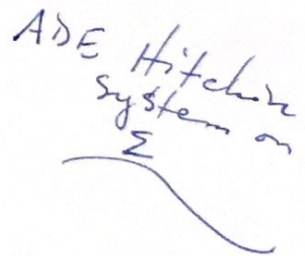 ADE Hitchin
system on
Σ